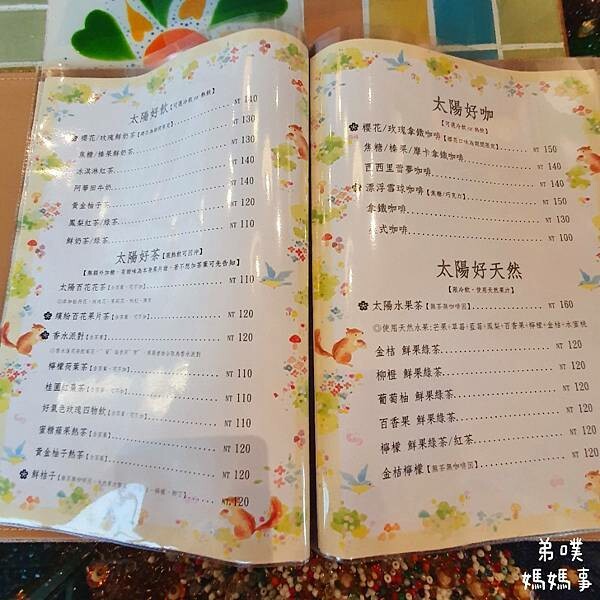 太陽好飲【可選冷飲 or 熱飲】
櫻花/玫瑰鮮奶茶 NT 140
焦糖/榛果鮮奶茶 NT 130
冰淇淋紅茶 NT 130
阿華田牛奶 NT 140
黃金柚子茶 NT 140
鳳梨紅茶/綠茶 NT 120
鮮奶茶/綠茶 NT 110
太陽好茶【限熱飲可回沖】
太陽百花花茶 NT 110
繽紛百花果片茶 NT 120
香水派對 NT 120
檸檬荷葉茶 NT 110
桂圓紅棗茶 NT 110
好氣色玫瑰四物飲 NT 110
蜜糖蘋果熱茶 NT 120
黃金柚子熱茶 NT 120
鮮柚子 NT 120
太陽好咖
【可選冷飲 or 熱飲】
櫻花/玫瑰拿鐵咖啡 NT 150
焦糖/榛果/摩卡拿鐵咖啡 NT 140
西西里蕾夢咖啡 NT 140
漂浮雪球咖啡【焦糖/巧克力】 NT 150
拿鐵咖啡 NT 130
式咖啡 NT 100
太陽好天然
【限冷飲,使用天然果汁】
太陽水果茶【無茶無咖啡因】 NT 160
◎使用天然水果:芒果+草莓+藍莓+鳳梨+百香果+檸檬+金桔+水蜜桃
金桔 鮮果綠茶 NT 120
柳橙 鮮果綠茶 NT 120
葡萄柚 鮮果綠茶 NT 120
百香果 鮮果綠茶 NT 120
檸檬 鮮果綠茶/紅茶 NT 120
金桔檸檬【無茶無咖啡因】 NT 120
弟噗
媽媽事